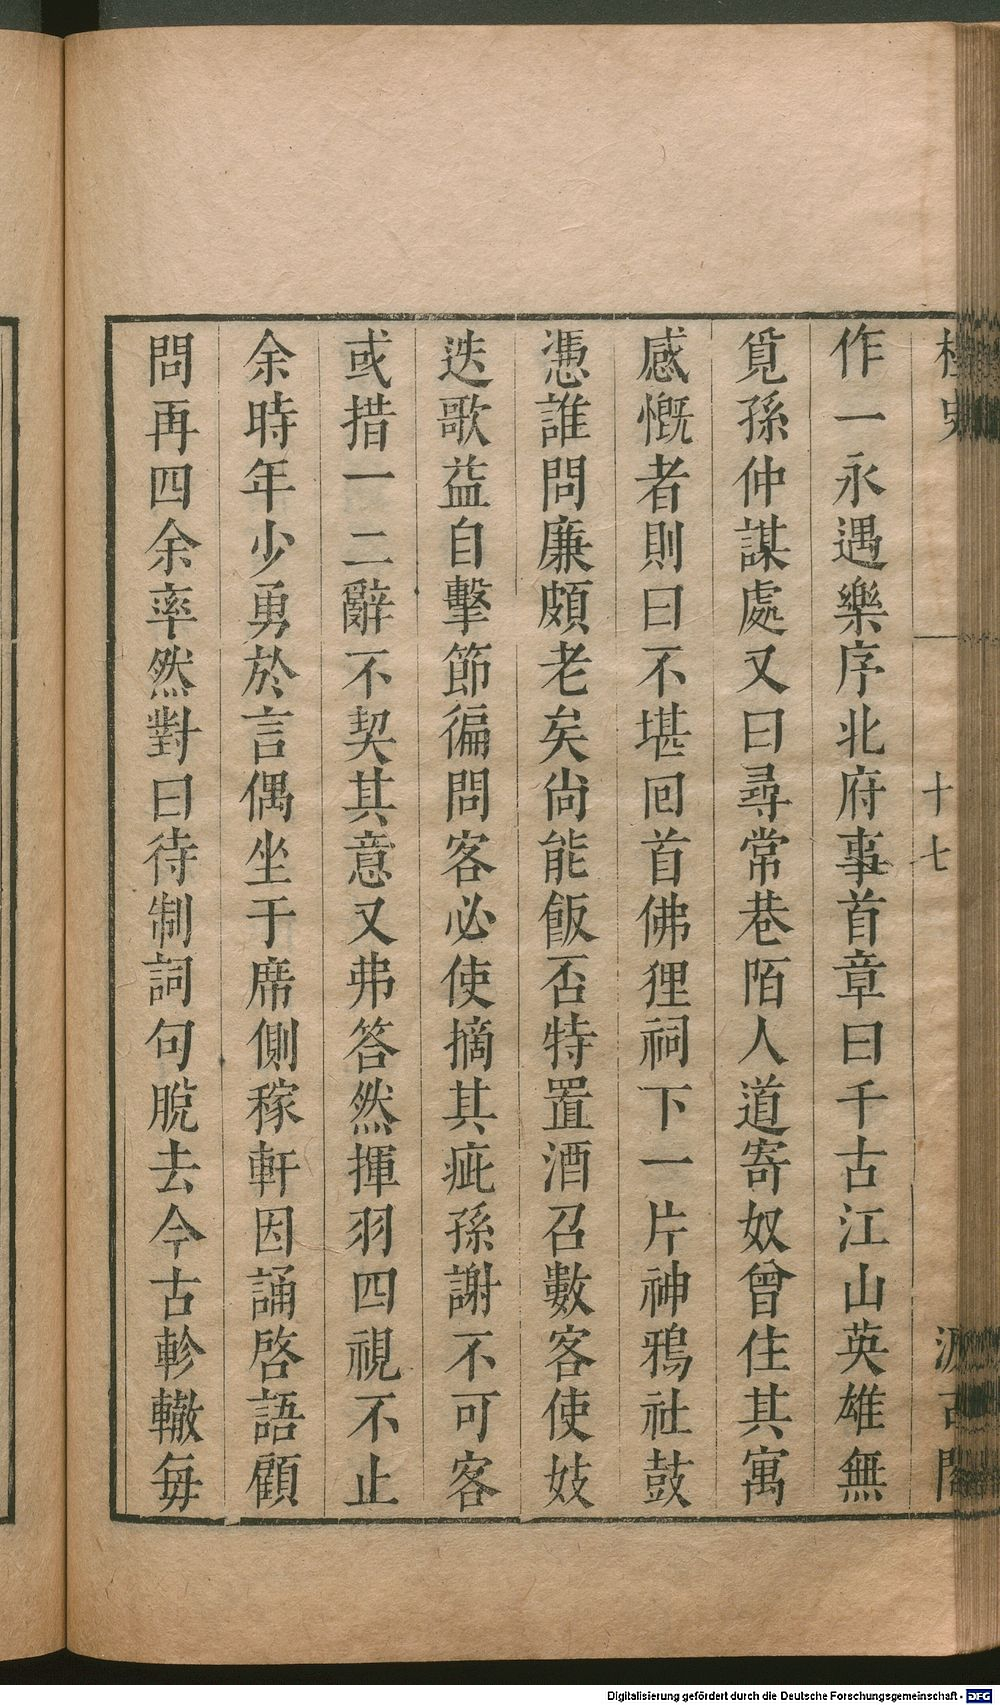 史
十七
作一永遇樂序北府事首章曰千古江山英雄無
覓孫仲謀處又曰尋常巷陌人道寄奴曾住其寓
感慨者則曰不堪回首佛狸祠下一片神鴉社鼓
憑誰問廉頗老矣尙能飯否特置酒召數客使妓
迭歌益自擊節徧問客必使摘其疵孫謝不可客
或措一二辭不契其意又弗答然揮羽四視不止
余時年少勇於言偶坐于席側稼軒因誦啓語顧
問再四余率然對曰待制詞句脫去今古軫轍每
Digitalisierung gefördert durch die Deutsche Forschungsgemeinschaft - DFG